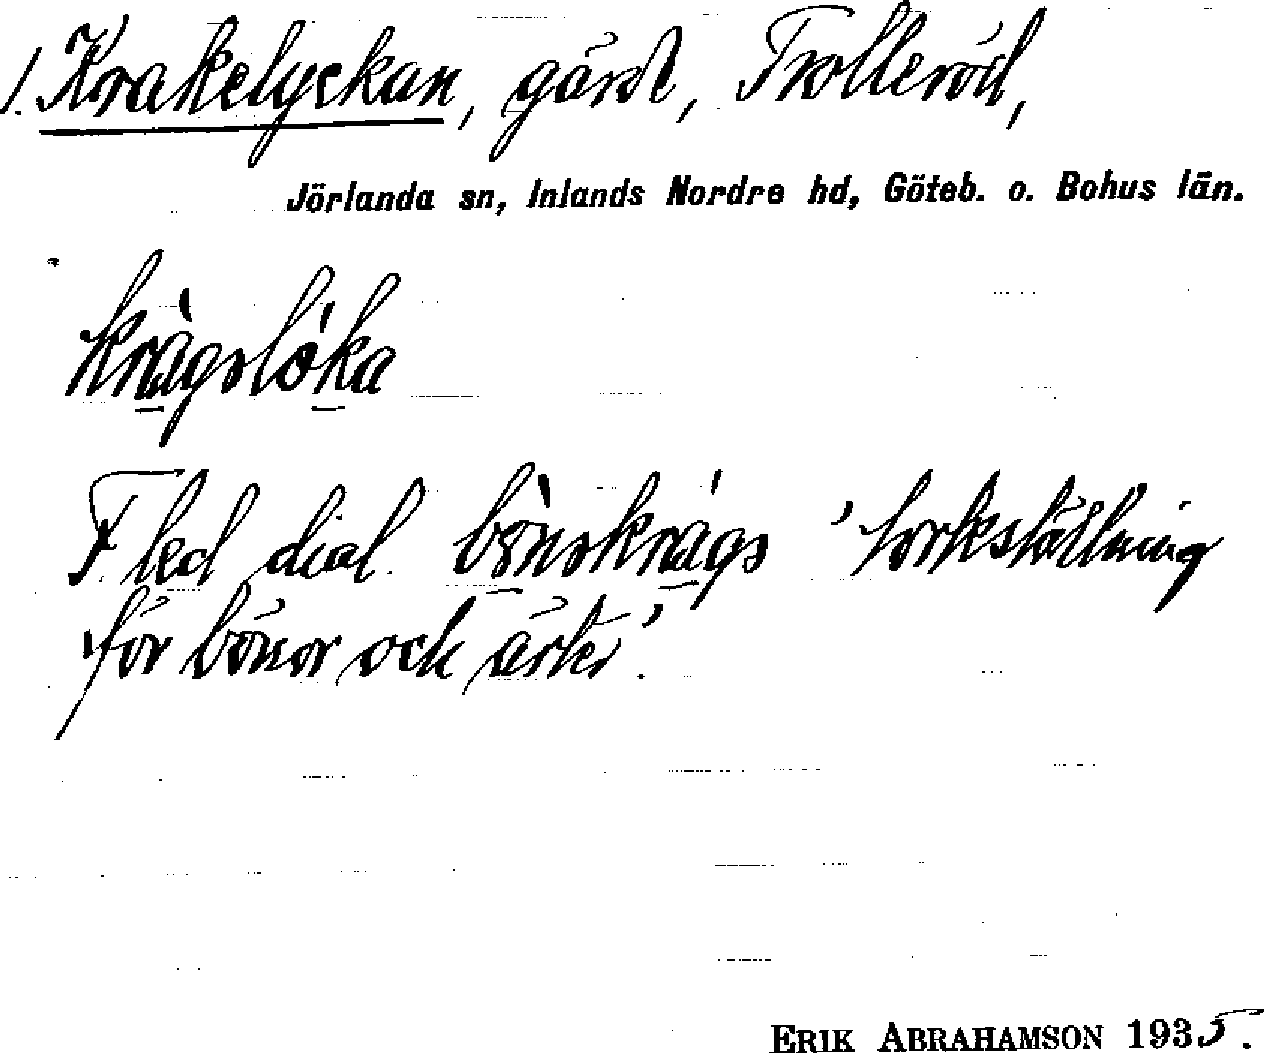 1. Krakelyckan, gård, Trolleröd,
Jörlanda sn, Inlands Nordre hd, Göteb. o. Bohus län.
kràgslòka
F. led dial. bònskràgs 'torkställning
för bönor och ärter'.
ERIK ABRAHAMSON 1935.